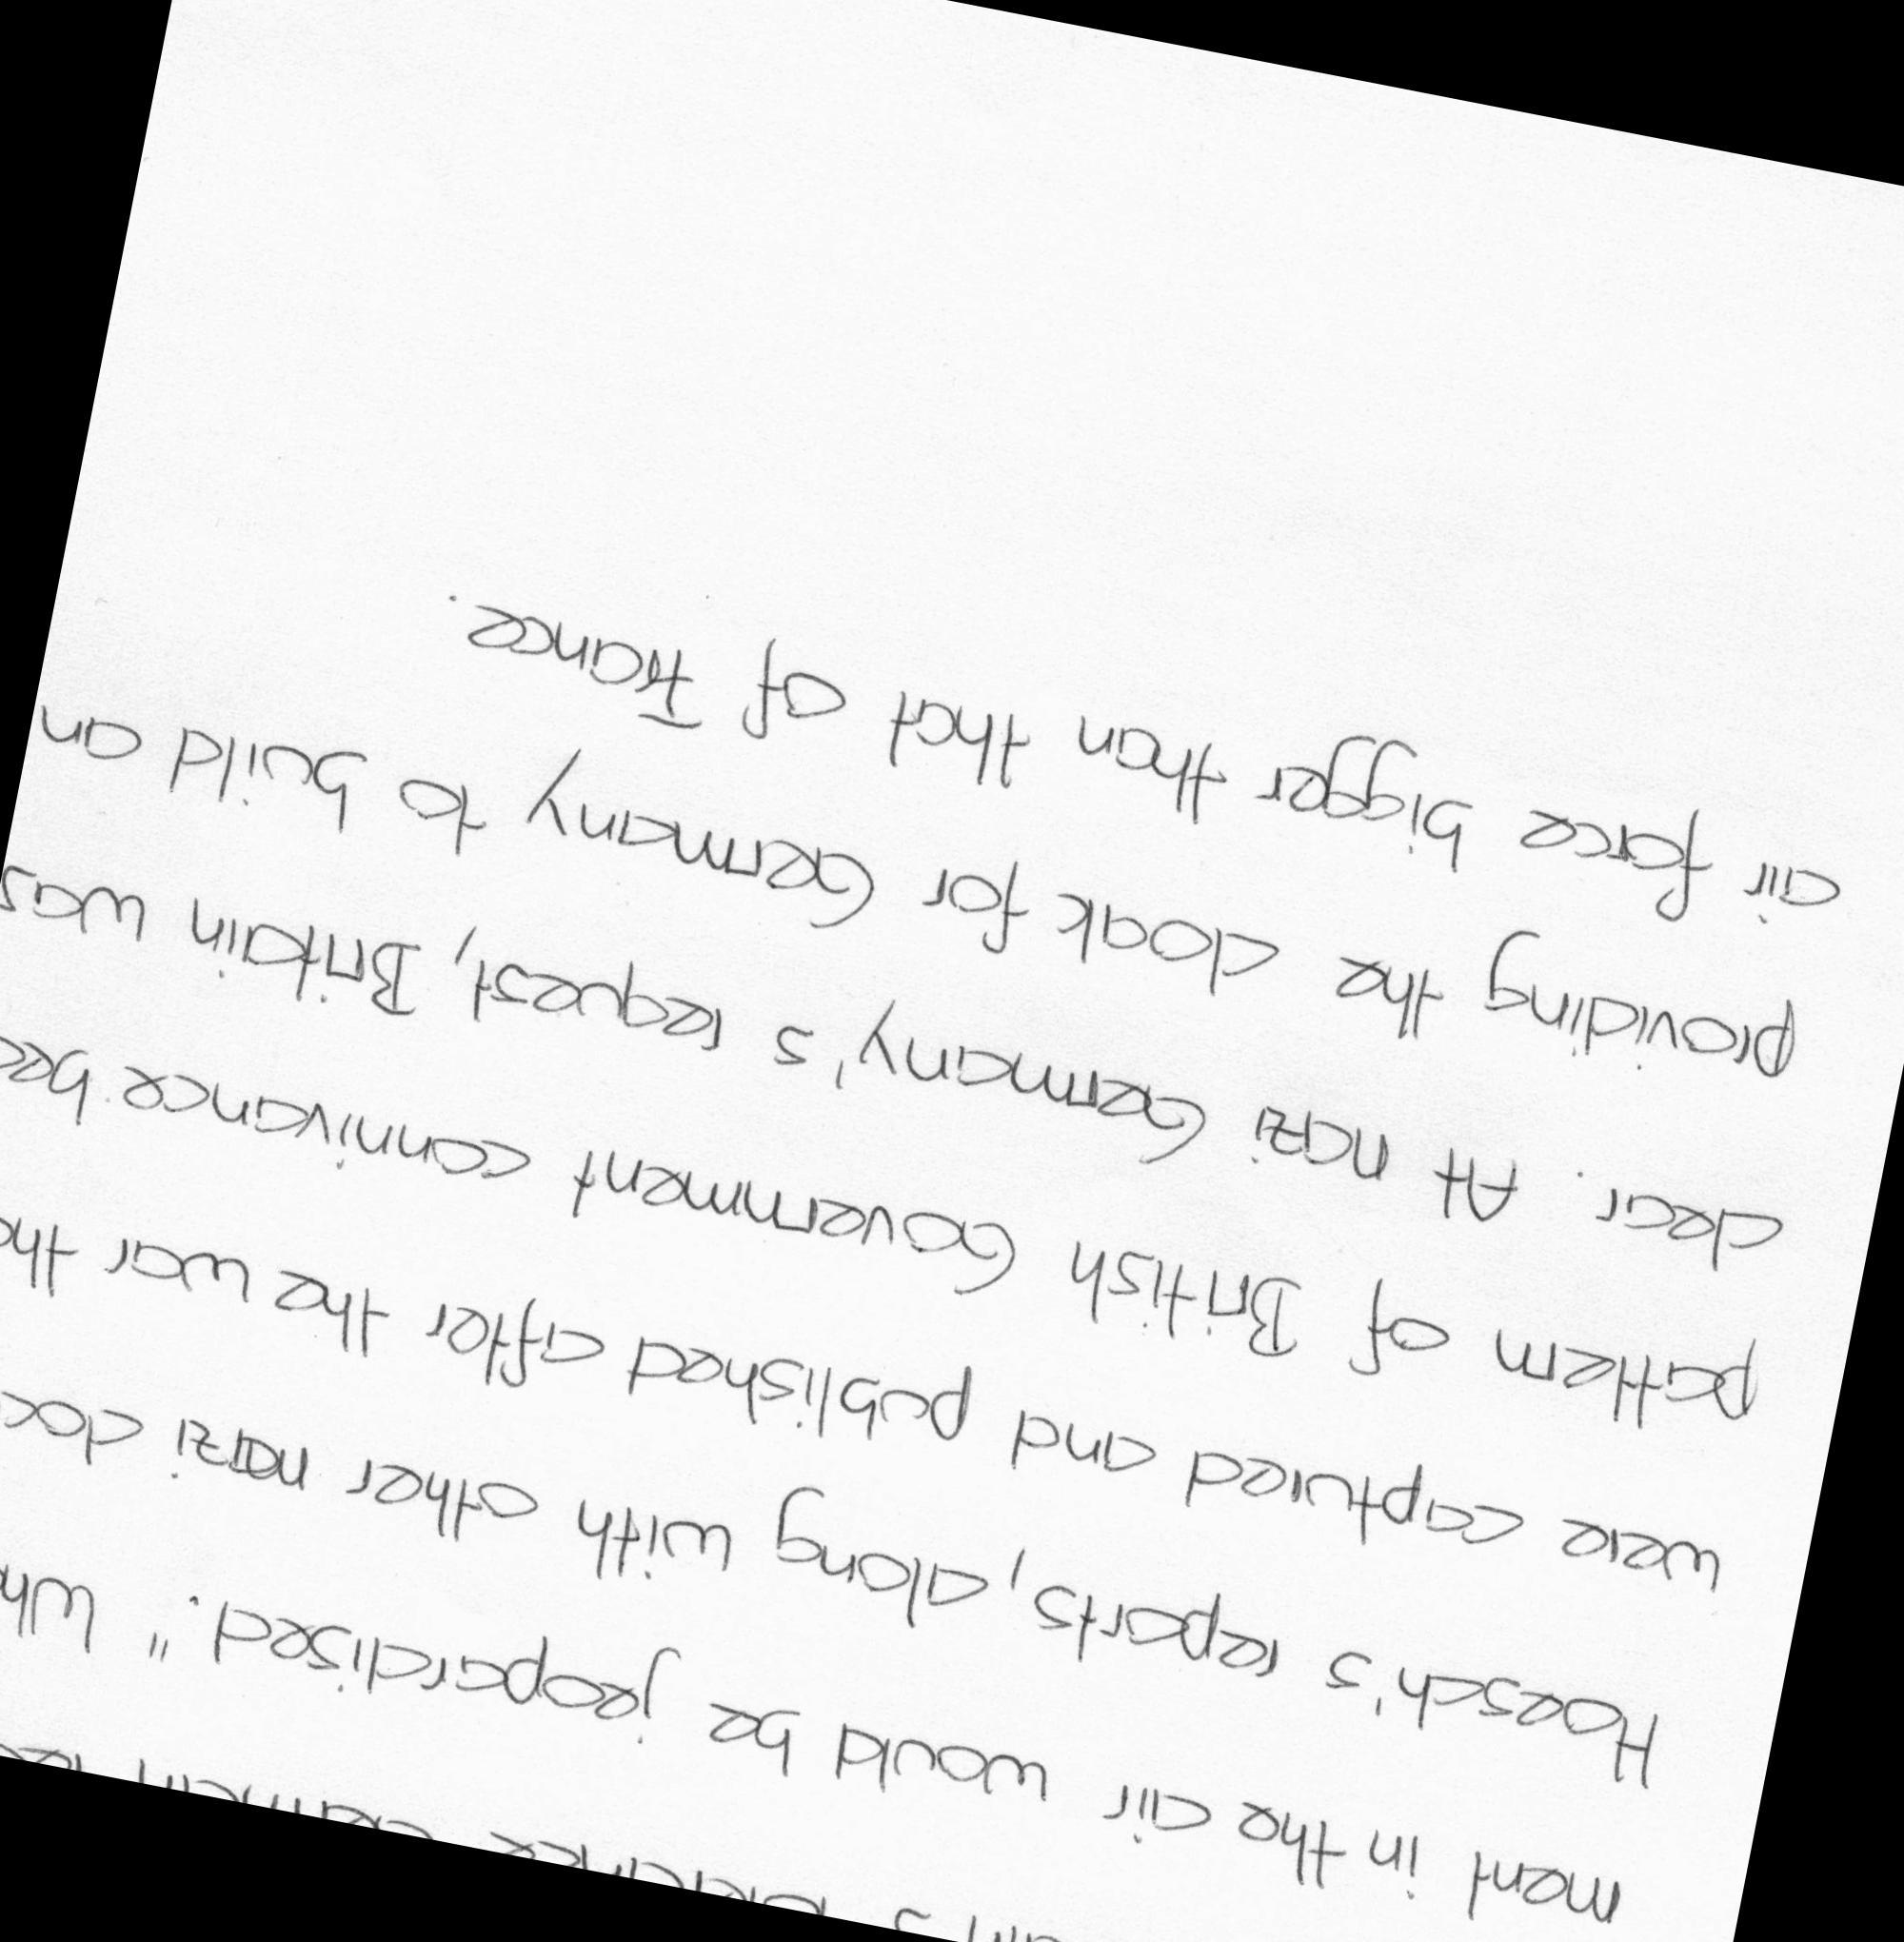 ment in the air would be jeopardised." Wh
Hoesch's reports, along with other nazi doc
were captured and published after the war the
pattern of British Government connivance bec
clear. At nazi Germany's request, Britain was
providing the cloak for Germany to build an
air force bigger than that of France.